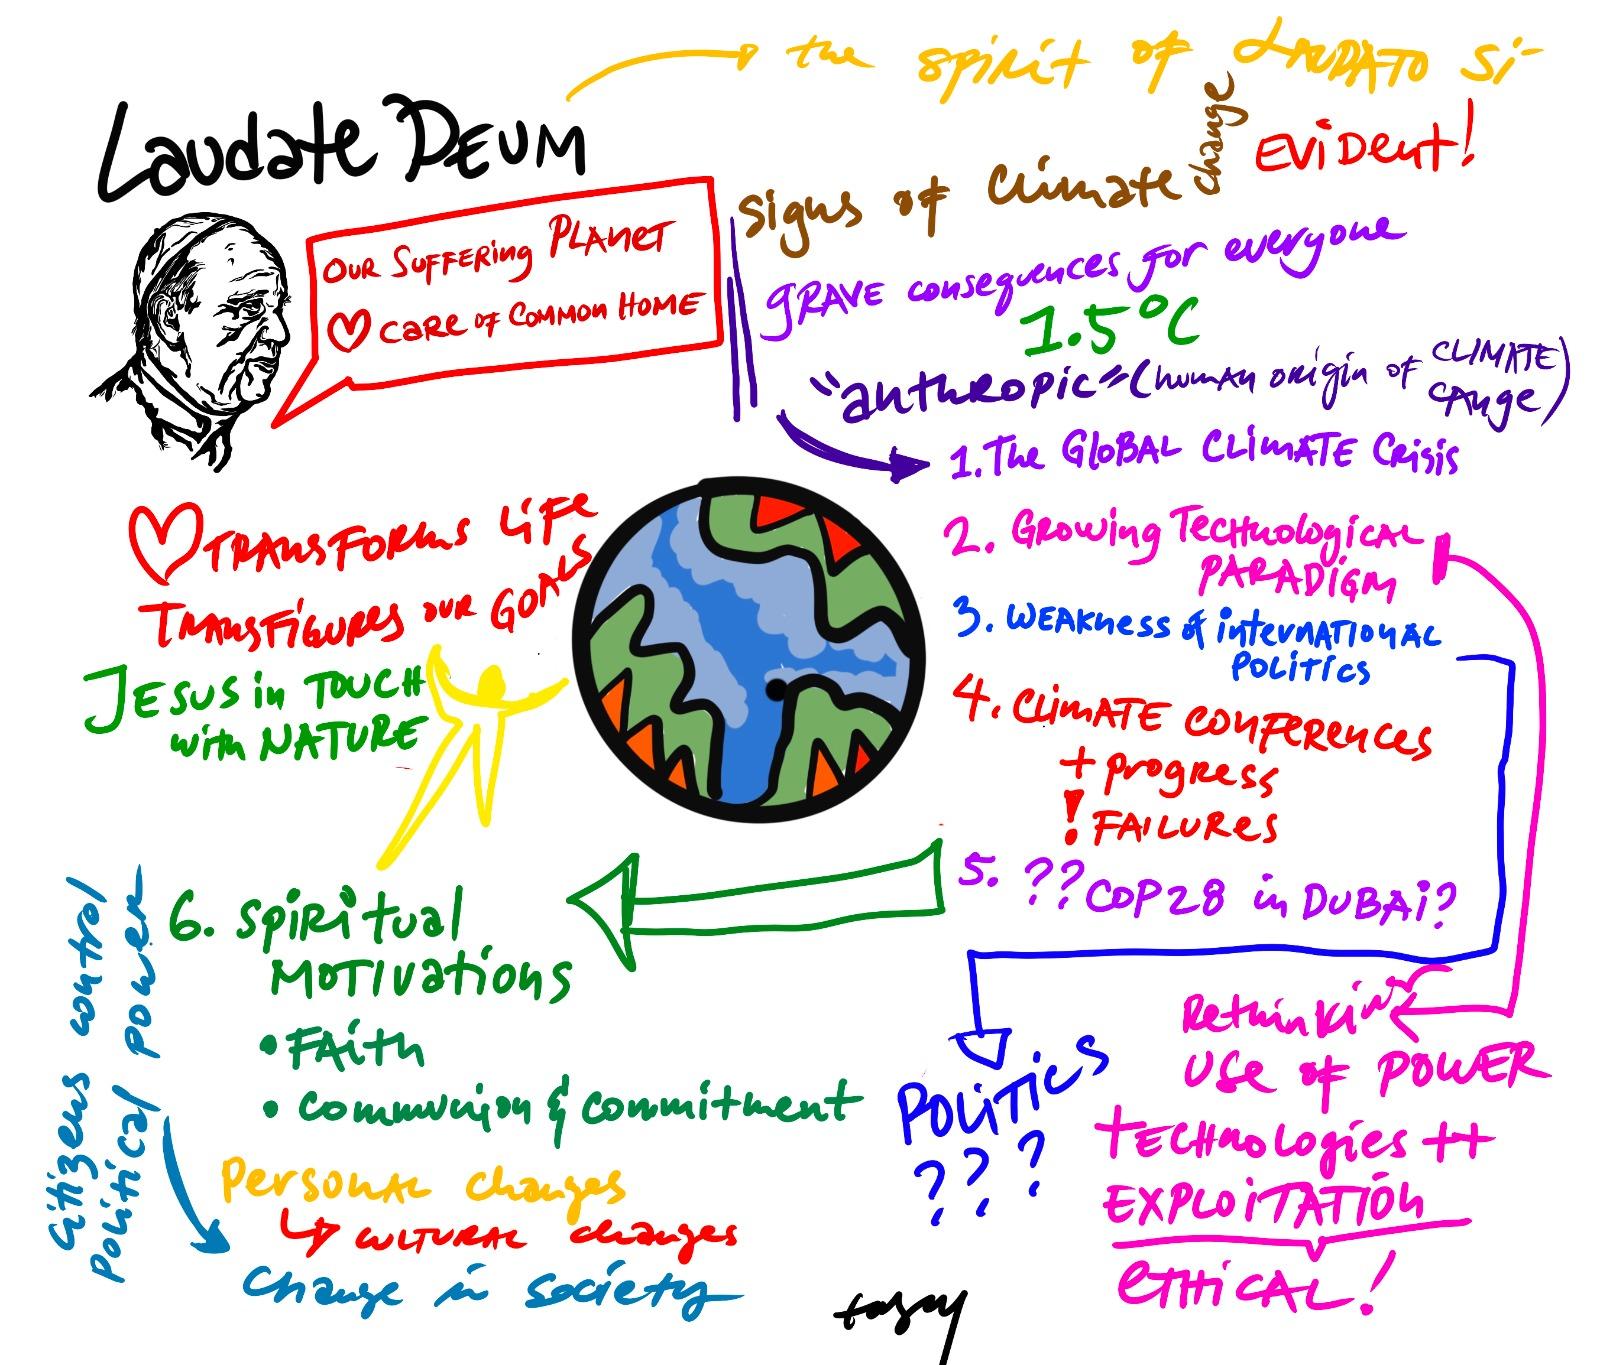 the spirit of LAUDATO Si-
Laudate DEUM
OUR SUFFERing PLANET
CARE OF COMMON HOME
Signs of Climate change EViDent!
gRAVE consequences for everyone
1.5°C
"anthropic" (human origin of CLIMATE CAnge)
1. The GloBAL CLiMATE Crisis
2. Growing TECHnological
PARADigM
3. WEAKness of interNATIONAL
POLitics
4. CLiMATE CONFERENCES
+ progress
! FAILURes
5. ?? COP28 in DUBAi?
TRANSFORMS LiFE
TRANSFiGURES OUR GOALS
JESUS in TOUCH
with NATURE
6. SPiRitual
MOTIVations
• FAith
• Communion & commitment
Citizens control
Political power
Personal changes
↳ CULTURAL changes
Change in society
POLiTiCS
???
Rethinking
USe of POWER
TECHnologies ++
EXPLOiTATION
eTHiCAL!